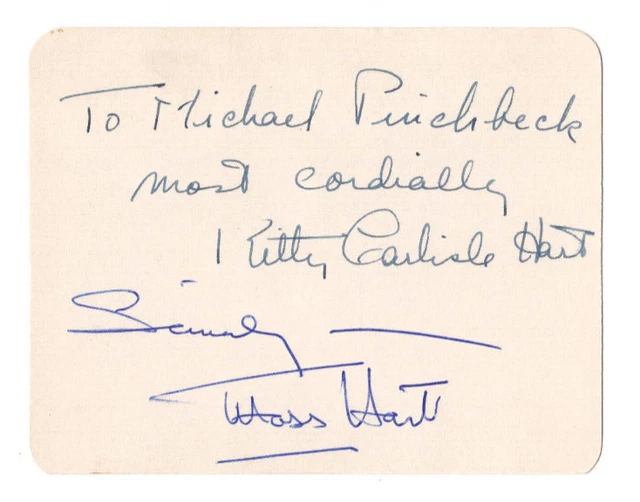 To Michael Pinchbeck
most cordially
Kitty Carlisle Hart
Sincerely
Moss Hart